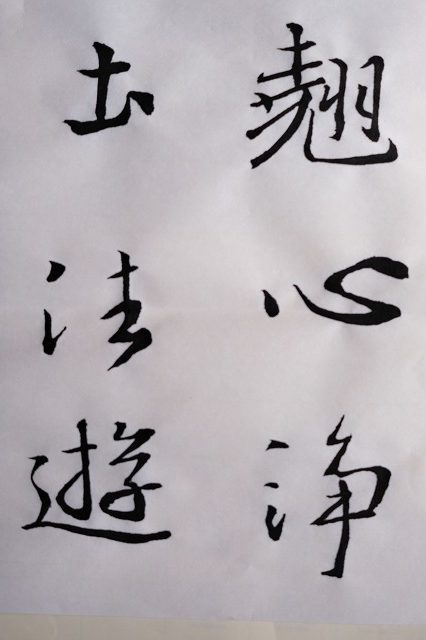 翹心淨
土法遊